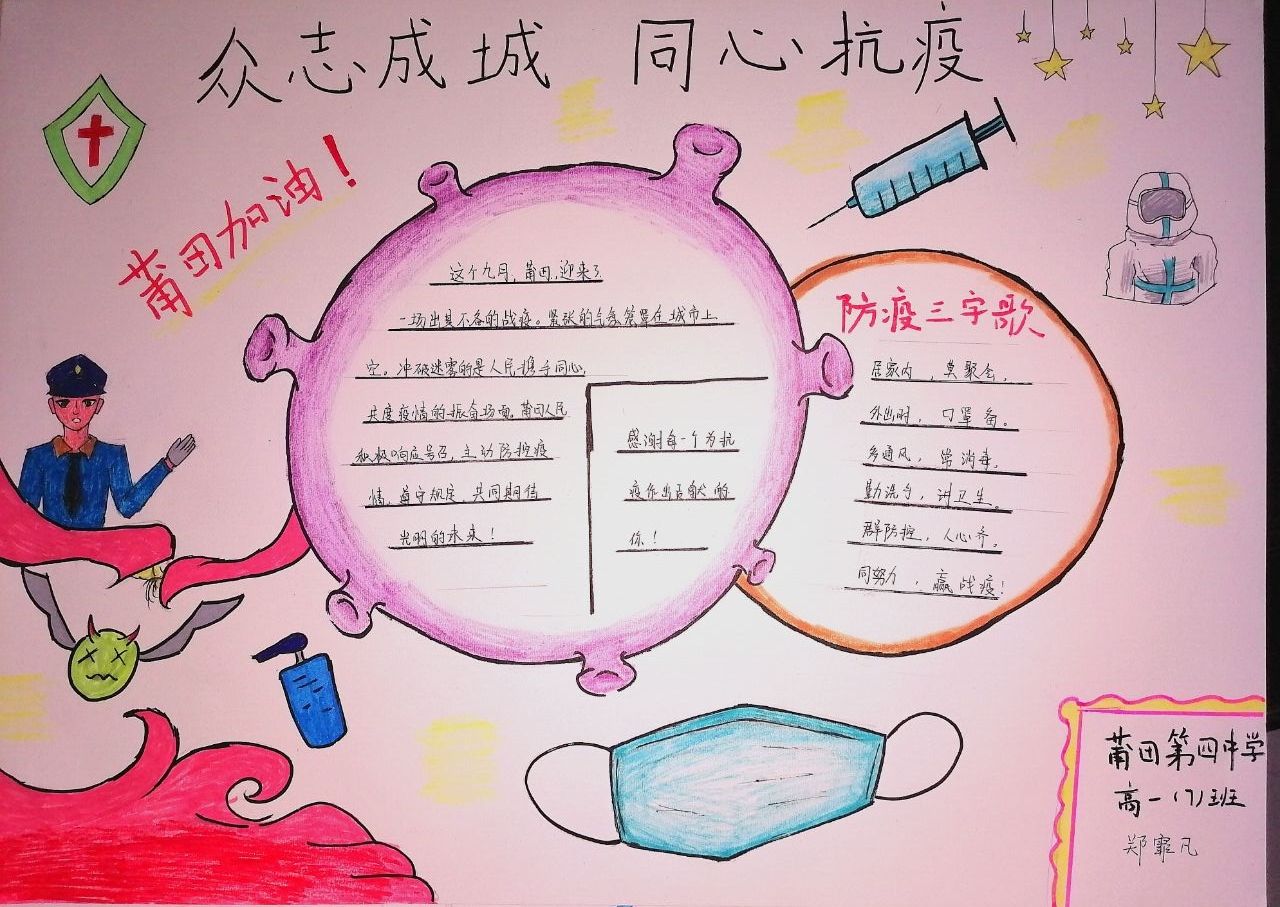 众志成城 同心抗疫
莆田加油！
这个九月，莆田，迎来了
一场出其不备的战疫。紧张的气氛笼罩在城市上
空。冲破迷雾的是人民携手同心，
共度疫情的振奋场面，莆田人民
积极响应号召，主动防控疫
情，遵守规定，共同期待
光明的未来！
感谢每一个为抗
疫作出贡献的
你！
防疫三字歌
居家内，莫聚会，
外出时，口罩备。
多通风，常消毒，
勤洗手，讲卫生。
群防控，人心齐。
同努力，赢战疫！
莆田第四中学
高一（7）班
郑霏凡